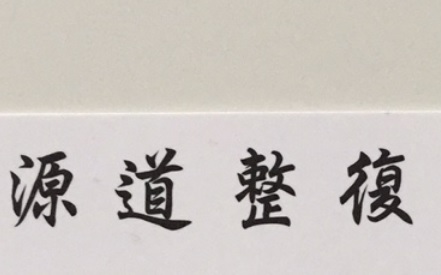 源道整復